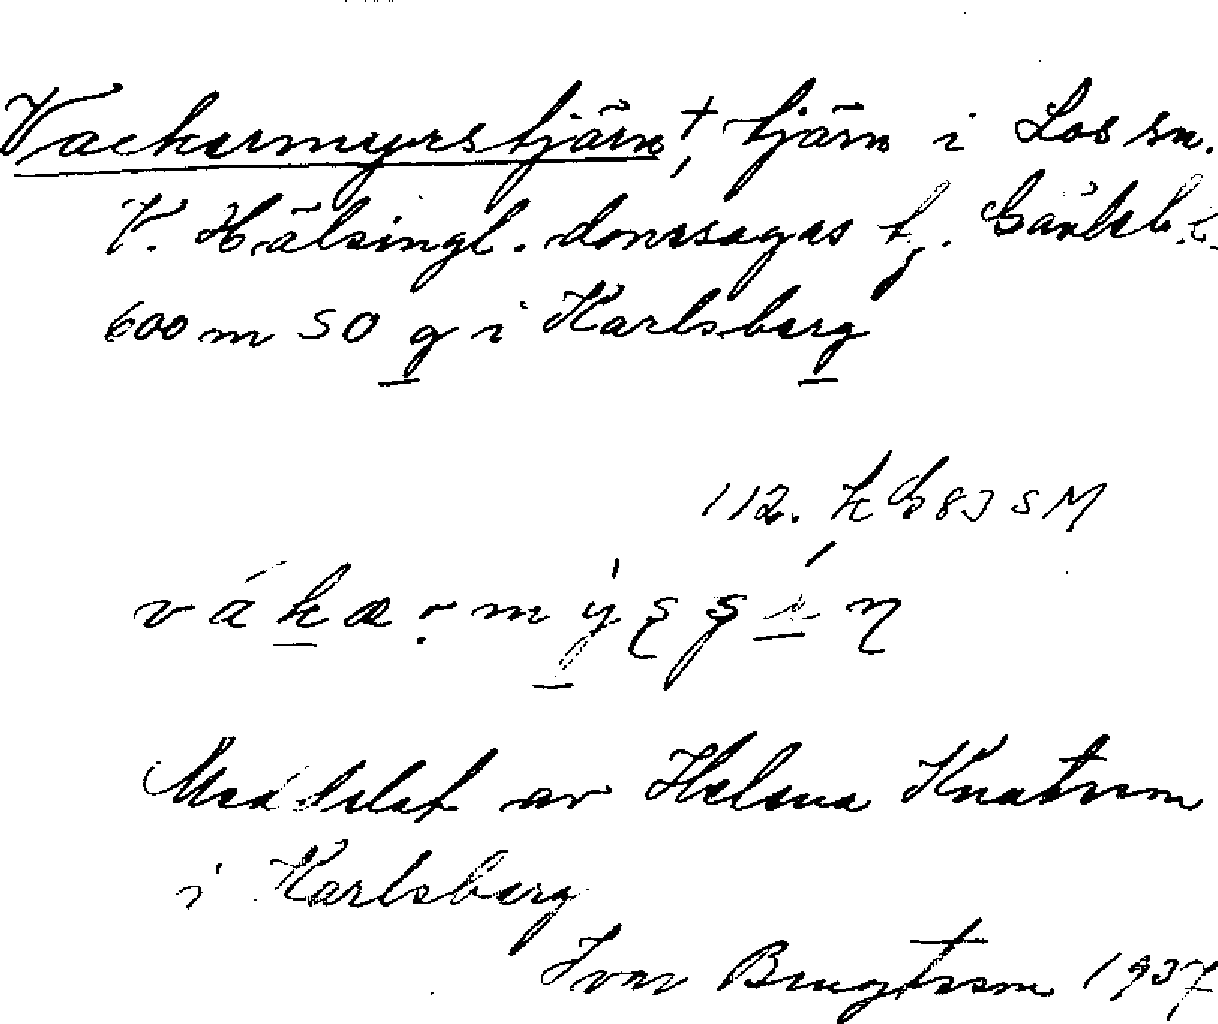 Vackermyrstjärn†, tjärn i Los sn.
V. Hälsingl. domsagas t g. Gävleb. l.
600 m SO g i Karlsberg
112. k G 83 SM
Meddelat av Helena Knutsson
i Karlsberg
Ivar Bengtsson 1937